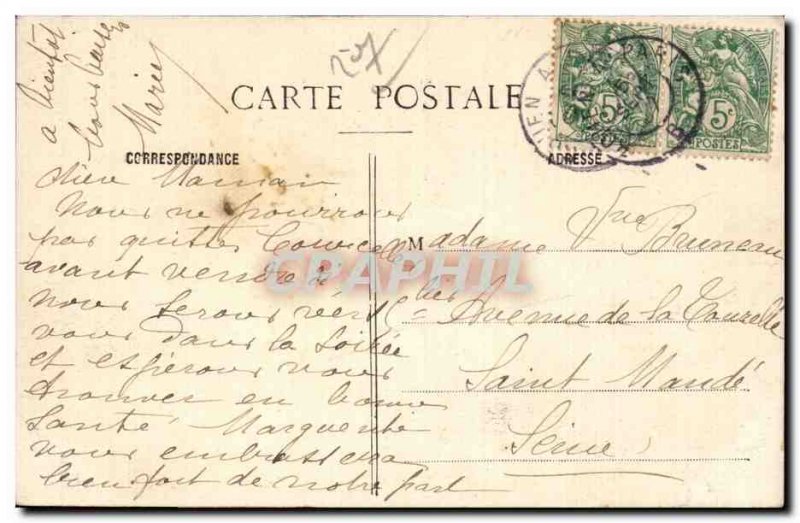 CARTE POSTALE
CORRESPONDANCE
ADRESSE
chère Maman
Nous ne pourrons
pas quitter Courcelles
avant vendredi
nous serons vers
vous dans la soirée
et espérons vous
trouver en bonne
santé Marguerite
vous embrassera
bien fort de notre part
à bientôt
bons baisers
Marie
Madame Vve Bruneau
Avenue de la Tourelle
Saint Mandé
Seine
5c 5c
POSTES
CPAPHIL